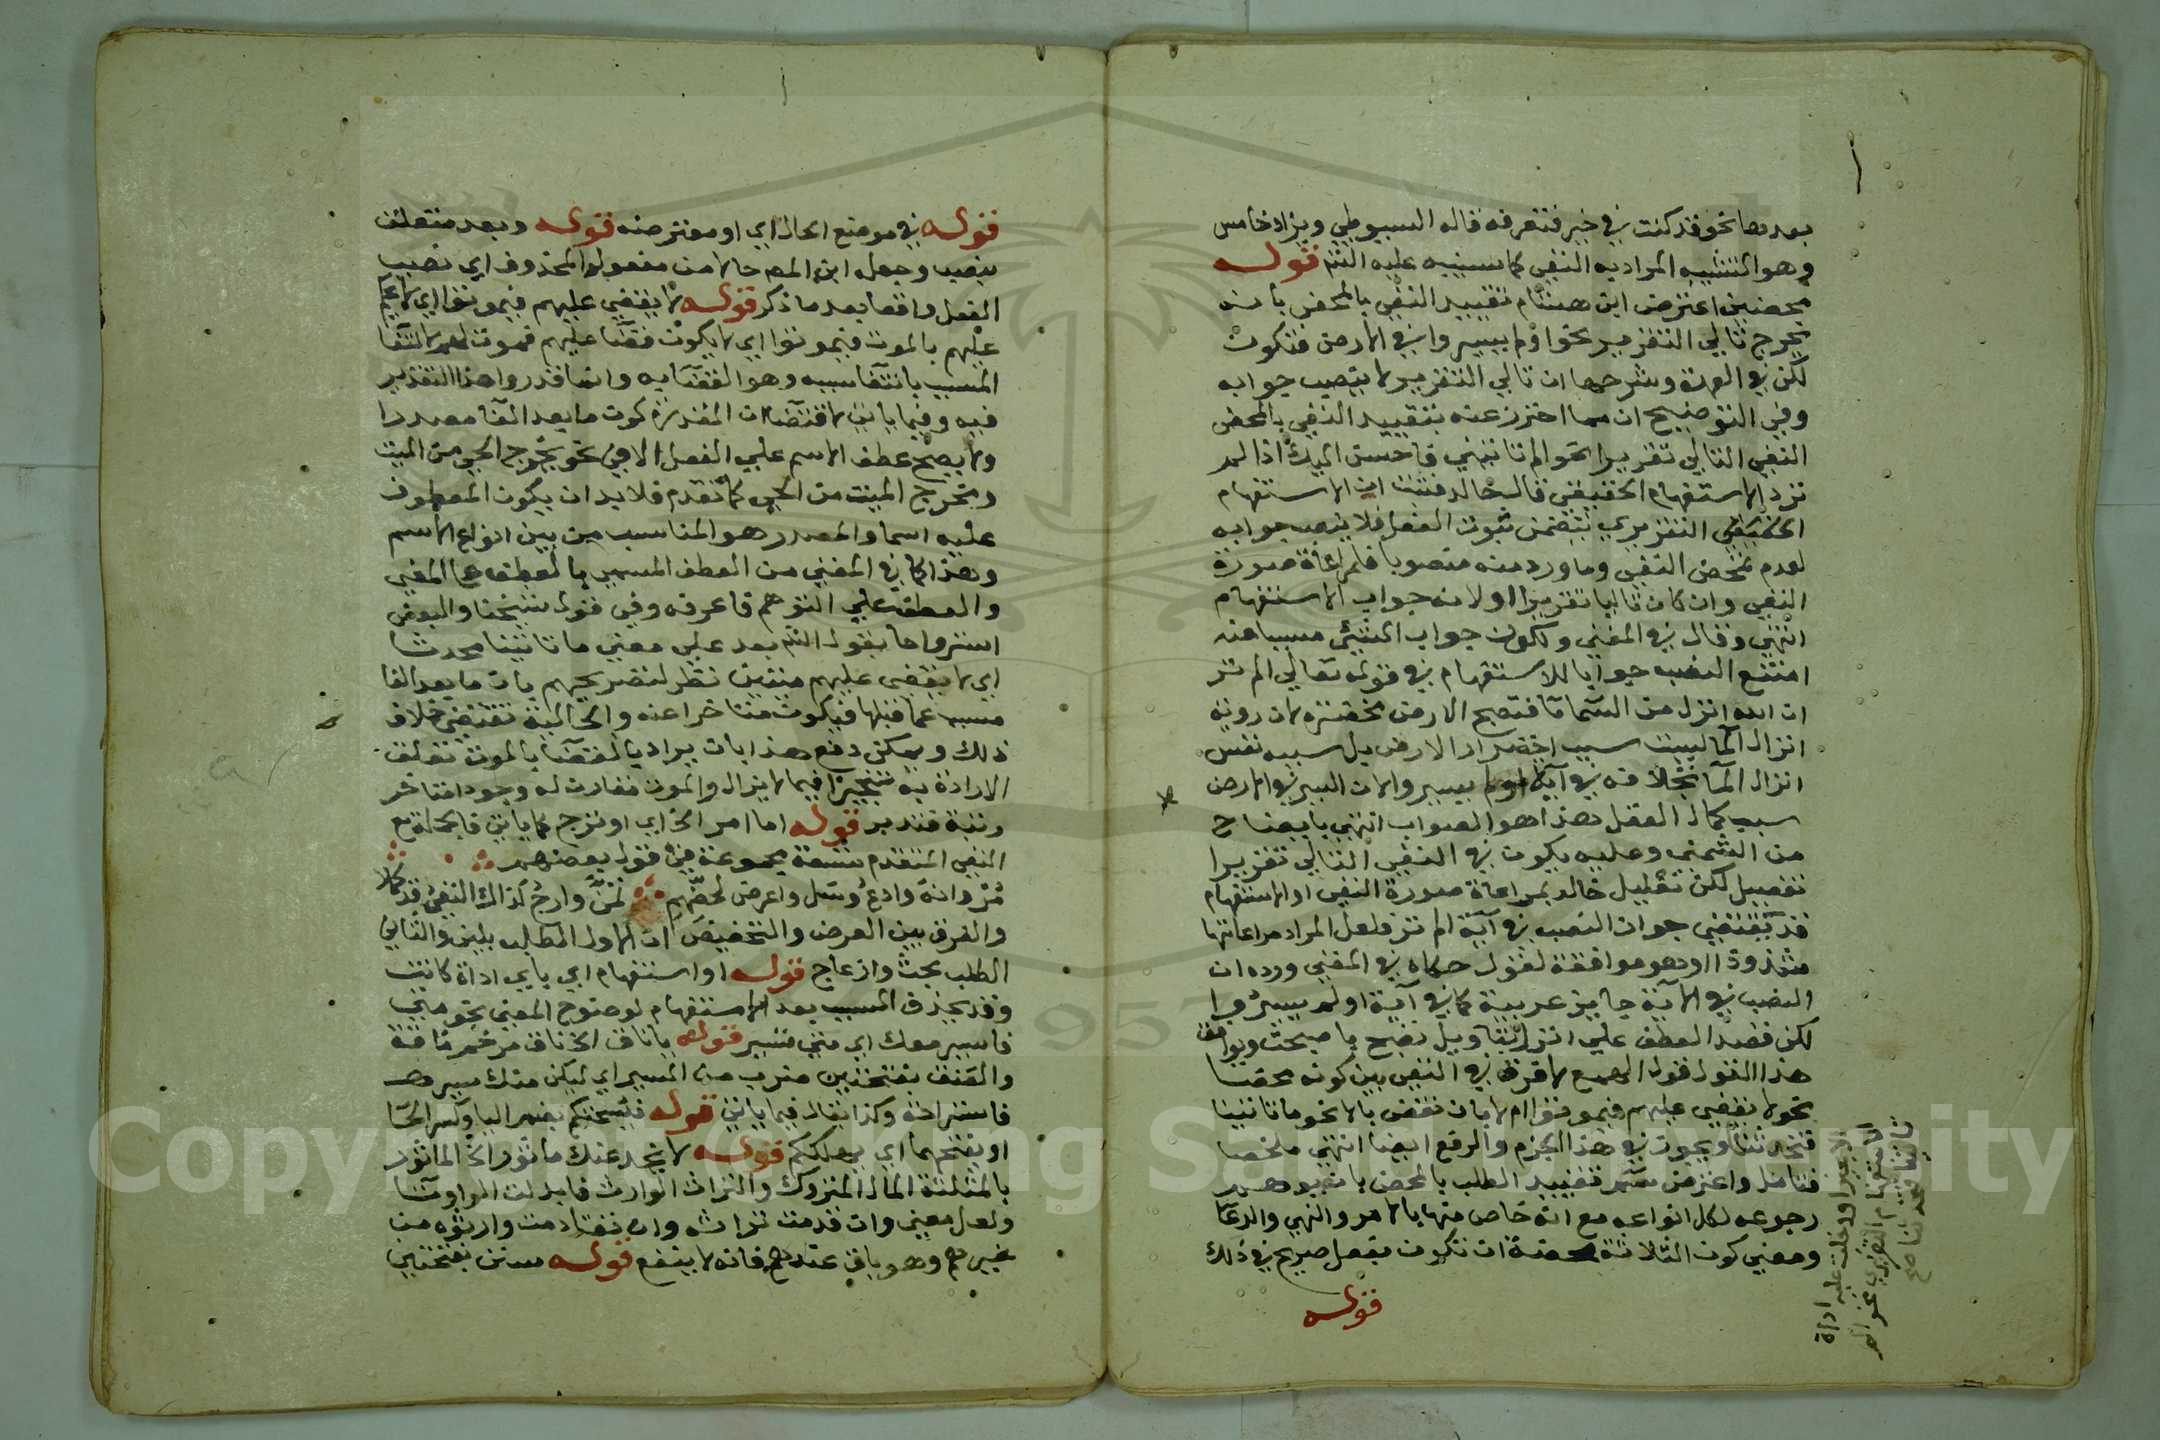 بعدها نحو قد كنت في خير فتعرفه قاله السيوطي ويزاد خامس
وهو التشبيه المراد به النفي كما سينبه عليه الش قوله
محضين اعترض ابن هشام تقييد النفي بالمحض بانه
يخرج تالي التقرير نحو اولم يسيروا في الارض فتكون
لكن في العمدة وشرحها ان تالي التقرير لا ينصب جوابه
وفي التوضيح ان مما احترز عنه بتقييد النفي بالمحض
النفي التالي تقريرا نحو الم تاتني فاحسن اليك اذا لم
ترد الاستفهام الحقيقي قال خالد فثبت ان الاستفهام
الحقيقي التقريري يتضمن ثبوت الفعل فلا ينصب جوابه
لعدم تمحض النفي وما ورد منه منصوبا فلمراعاة صورة
النفي وان كان تاليا تقريرا او لانه جواب الاستفهام
انتهي وقال في المغني ولكون جواب الشيء مسببا عنه
امتنع النصب جوابا للاستفهام في قوله تعالي الم تر
ان الله انزل من السماء ماء فتصبح الارض مخضرة لان رويه
انزال الماء ليست سبب اخضرار الارض بل سببه نفس
انزال الماء بخلافه في آية اولم يسيروا لان السير في الارض
سبب كمال العقل هذا هو الصواب انتهي بايضاح
من الشمني وعليه يكون في النفي التالي تقريرا
تفصيل لكن تعليل خالد بمراعاة صورة النفي او الاستفهام
قد يقتضي جواز النصب في آية الم تر فلعل المراد مراعاتها
شذوذا او هو موافقة لقول حكاه في المغني ورده ان
النصب في الآية جايز عربية كما في آية اولم يسيروا
لكن قصد العطف علي انزل بتاويل تصبح باصبحت ويوافق
هذا القول قول الهمع لا فرق في النفي بين كونه محضا
نحو لا يقضي عليهم فيموتوا ام لا بان نقض بالا نحو ما تاتينا
فتحدثنا ويجوز في هذا الجزم والرفع ايضا انتهي ملخصا
فتامل واعترض سم تقييد الطلب بالمحض بايهام
رجوعه لكل انواعه مع انه خاص منها بالامر والنهي والدعاء
ومعني كون الثلاثة محضة ان تكون بفعل صريح في ذلك
قوله
الا خيرا ودخلت عليه اداة
الاستفهام التقريري نحو الم
تاتنا فتحدثنا صح
قوله في موضع الحال اي او معترضه قوله وبعد متعلق
بنصب وجعل ابن المص حالا من مفعوله المحذوف اي نصب
الفعل واقعا بعد ما ذكر قوله لا يقضي عليهم فيموتوا اي لا يحكم
عليهم بالموت فيموتوا اي لا يكون قضاء عليهم فموت لهم لانتفاء
المسبب بانتفاء سببه وهو القضاء به وانما قدروا هذا التقدير
فيه وفيما ياتي لاقتضاء ان المقدرة كون ما بعد الفاء مصدرا
ولا يصح عطف الاسم علي الفعل الا في نحو يخرج الحي من الميت
ومخرج الميت من الحي كما تقدم فلا بد ان يكون المعطوف
عليه اسما والمصدر هو المناسب من بين انواع الاسم
وهذا كما في المغني من العطف المسمي بالعطف علي المعني
والعطف علي التوهم فاعرفه وفي قول شيخنا والبعض
استرواحا بقول الش بعد علي معني ما تاتينا محدثا
اي لا يقضي عليهم ميتين نظر لتصريحهم بان ما بعد الفاء
مسبب عما قبلها فيكون متاخرا عنه والحالية تقتضي خلاف
ذلك ويمكن دفع هذا بان يراد بالقضاء بالموت تعلق
الارادة به تنجيزا فيما لا يزال والموت مقارن له وجودا متاخر
رتبة فتدبر قوله اما امر الخ اي او ترج كما ياتي فالجملة مع
النفي المتقدم تسعة مجموعة في قول بعضهم
مر وانه وادع وسل واعرض لحضهم تمن وارج كذاك النفي قد كملا
والفرق بين العرض والتخضيض ان الاول الطلب بلين والثاني
الطلب بحث وازعاج قوله او استفهام اي باي اداة كانت
وقد يحذف السبب بعد الاستفهام لوضوح المعني نحو متي
فاسير معك اي متي تسير قوله ياناق الخ ناق مرخم ناقة
والعنق بفتحتين ضرب من السير اي ليكن منك سير
فاستراحة وكذا يقال فيما ياتي قوله فيسحتكم بضم اليا وكسر الحاء
او بفتحهما اي يهلككم قوله لا يخدعنك ماثور الخ الماثور
بالمثلثة المال المتروك والتراث الوارث فابدلت الواو تاء
ولعل معني وان قدمت تراثه وان تقادمت وارثوه من
غيرهم وهو باق عندهم فانه لا ينفع قوله سنن بفتحتين